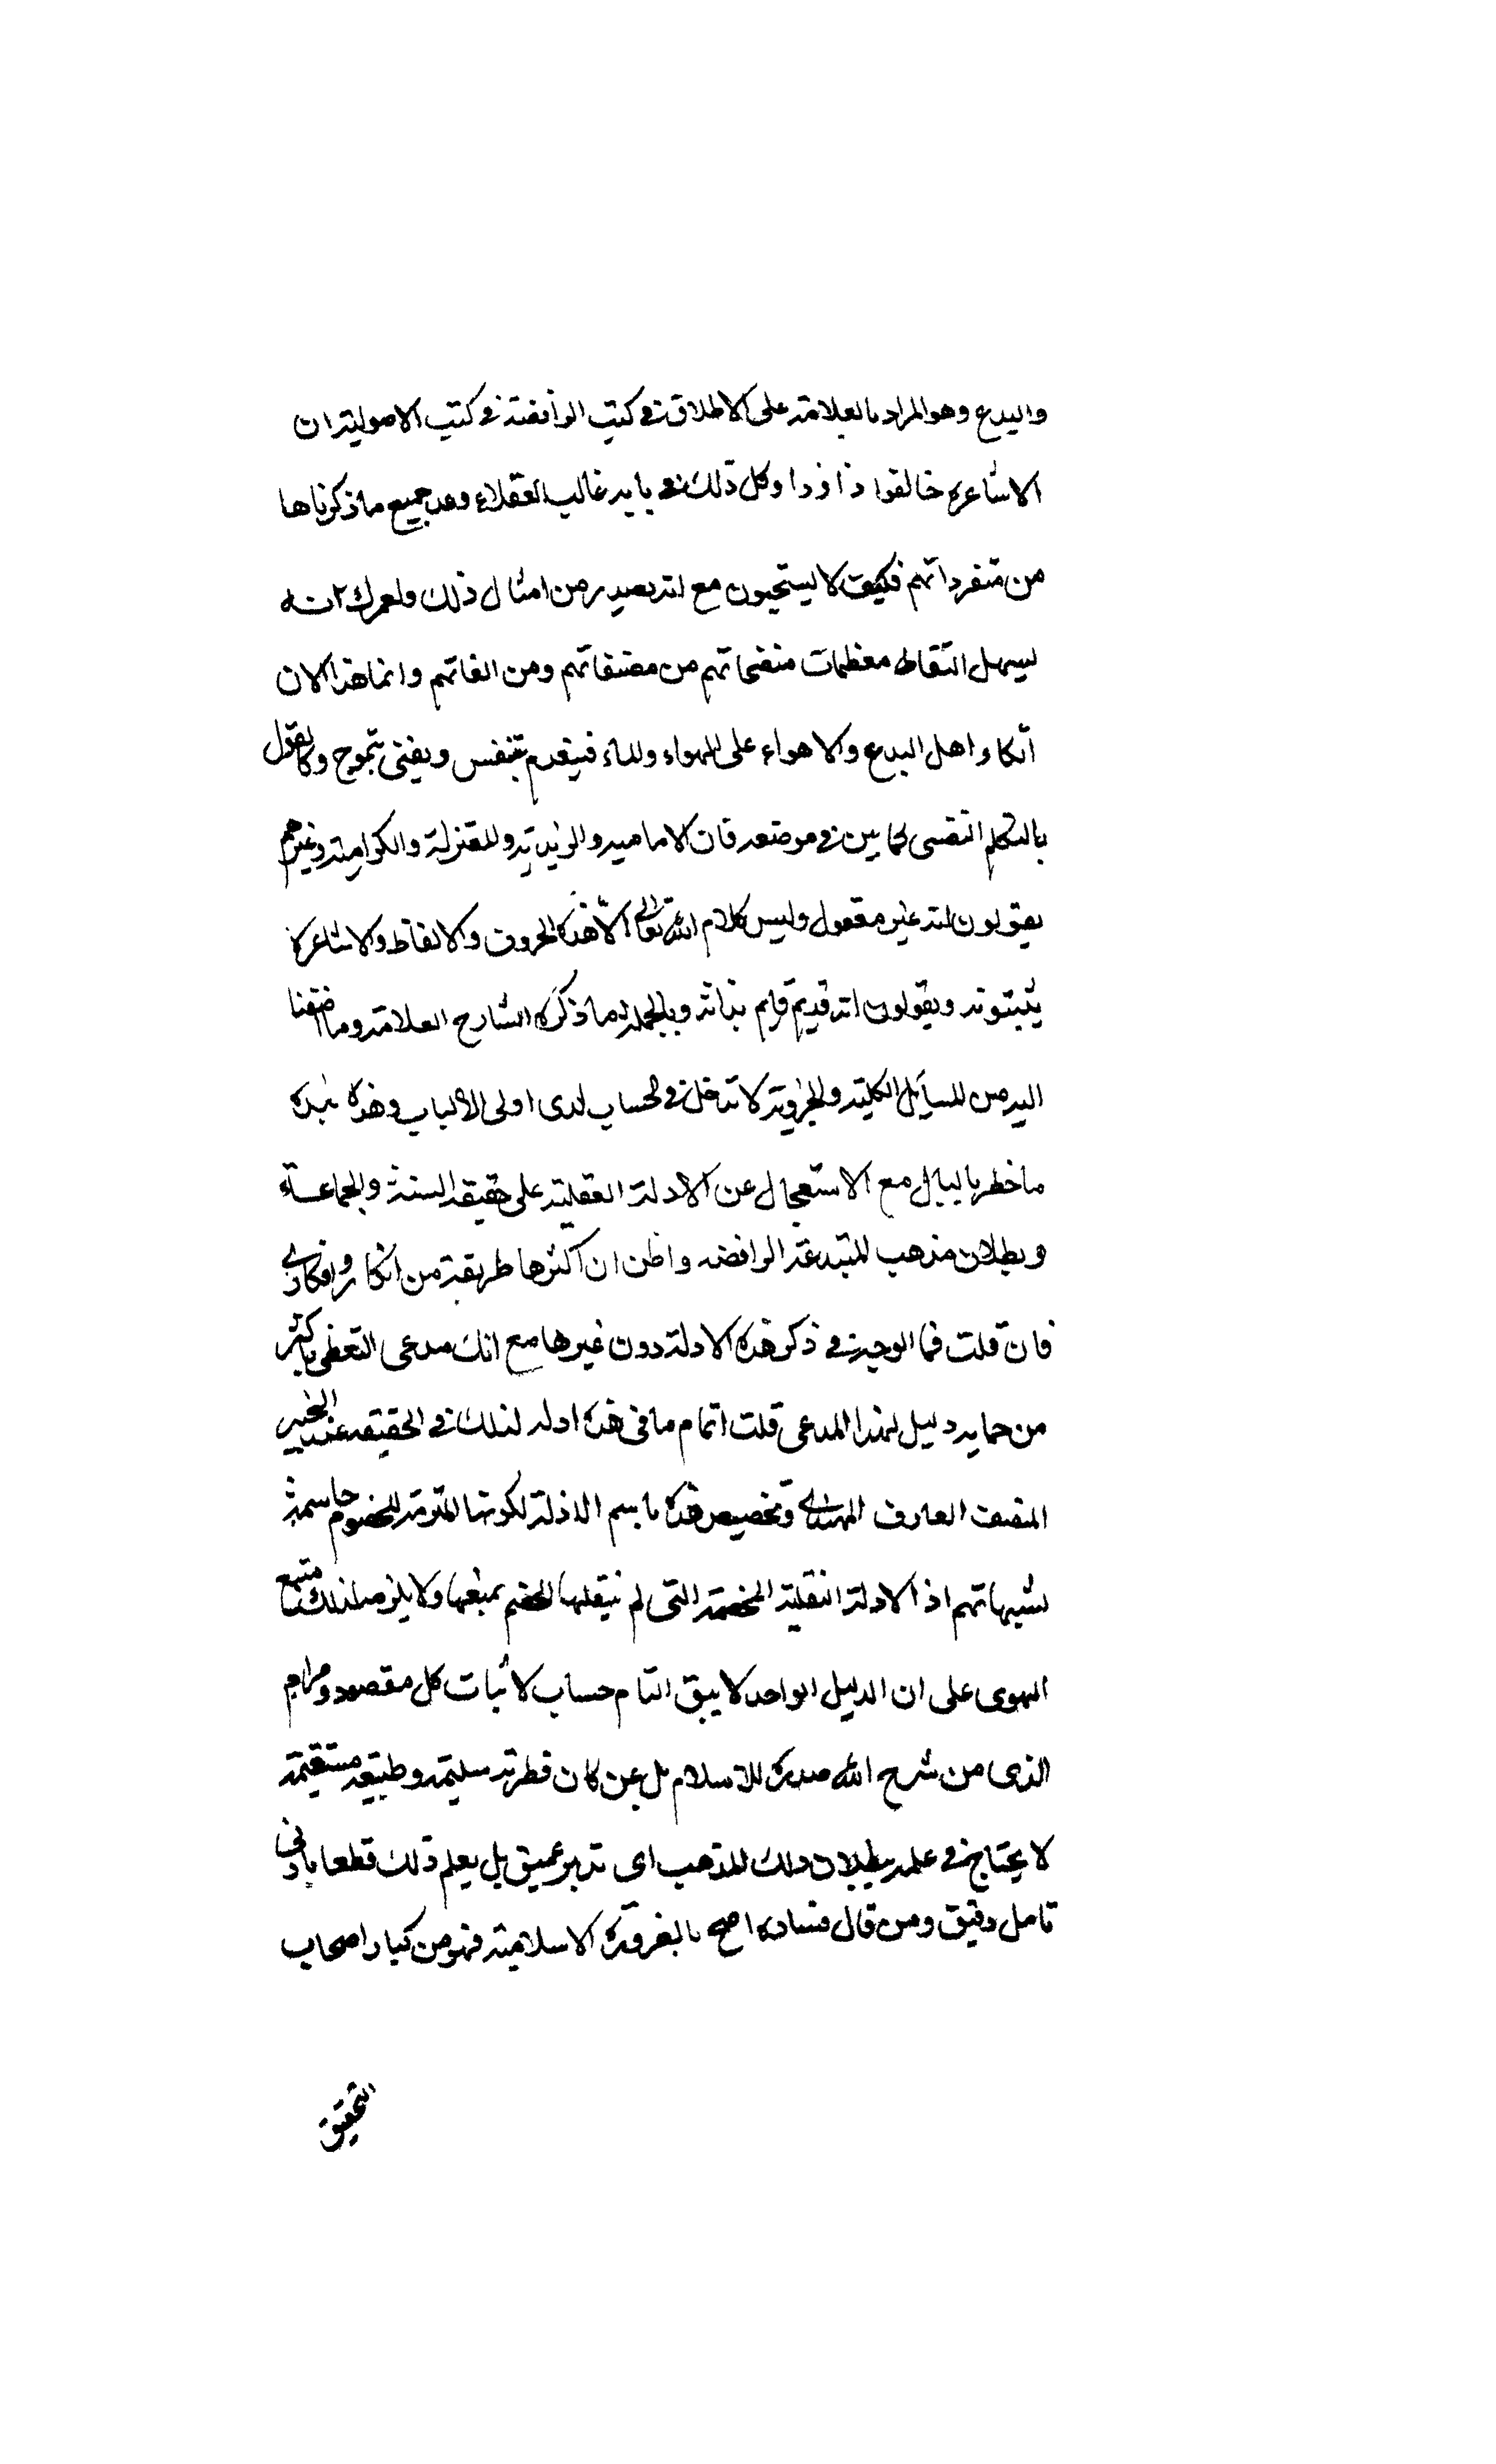 والبدع وهو المراد بالعلامة على الاطلاق في كتب الرافضة في كتب الاصولية ان
الاشاعرة خالفوا ذا وذا وكل ذلك غالب العقلاء وعد جميع ما ذكرناها
من متفرداتهم فكيف لا يستحيون مع انه بصيد رمن امثال ذلك ولعمرك انه
ليسهل التقاط معظمات من مصنفاتهم ومن الفاتهم وانما هذا الان
اتكاء اهل البدع والاهواء على الهواء والماء فينعدم بتنفس ويفنى بتموج وكا يقول
بالتكلم النفسي كما بين في موضعه فان الامامية والزيدية والمعتزلة والكرامية وغيرهم
يقولون انه غير معقول وليس كلام الله تعالى الا هذه الحروف والالفاظ والاشاعرة
يثبتونه ويقولون انه قديم قايم بذاته وبالجملة ما ذكره الشارح العلامة وما اضفنا
اليه من المسايل الكلية والجزوية لا تدخل في الحساب لدى اولى الالباب وهذه نبذه
ما خطر بالبال مع الاستعجال عن الادلة العقلية على حقيقة السنة والجماعة
وبطلان مذهب المبتدعة الرافضه واظن ان اكثرها طريقة من ابكار وافكاري
فان قلت فما الوجه في ذكر هذه الادلة دون غيرها مع انك مدعى باكثر
من دليل لهذا المدعى قلت اتمام ما في هذه ادله لذلك في الحقيقة عند الخبير
المنصف العارف وتخصيص هذه باسم الادلة لكونها للخصوم حاسمة
لشبهاتهم اذ الادلة النقلية التي لم ينقلها الخصم يمنعها ولا لذلك متبع
الهوى على ان الدليل الواحد التام حساب لاثبات كل مقصود ومرام
الذى من شرح الله صدره للاسلام بل عن كان فطرته سليمة وطبيعة مستقيمة
لا يحتاج في علمه ببطلان ذلك المذهب اى تدبر عميق بل يعلم ذلك قطعا بادنى
تامل دقيق ومن قال فساده الاسلامية فهو من كبار اصحاب
التحقيق